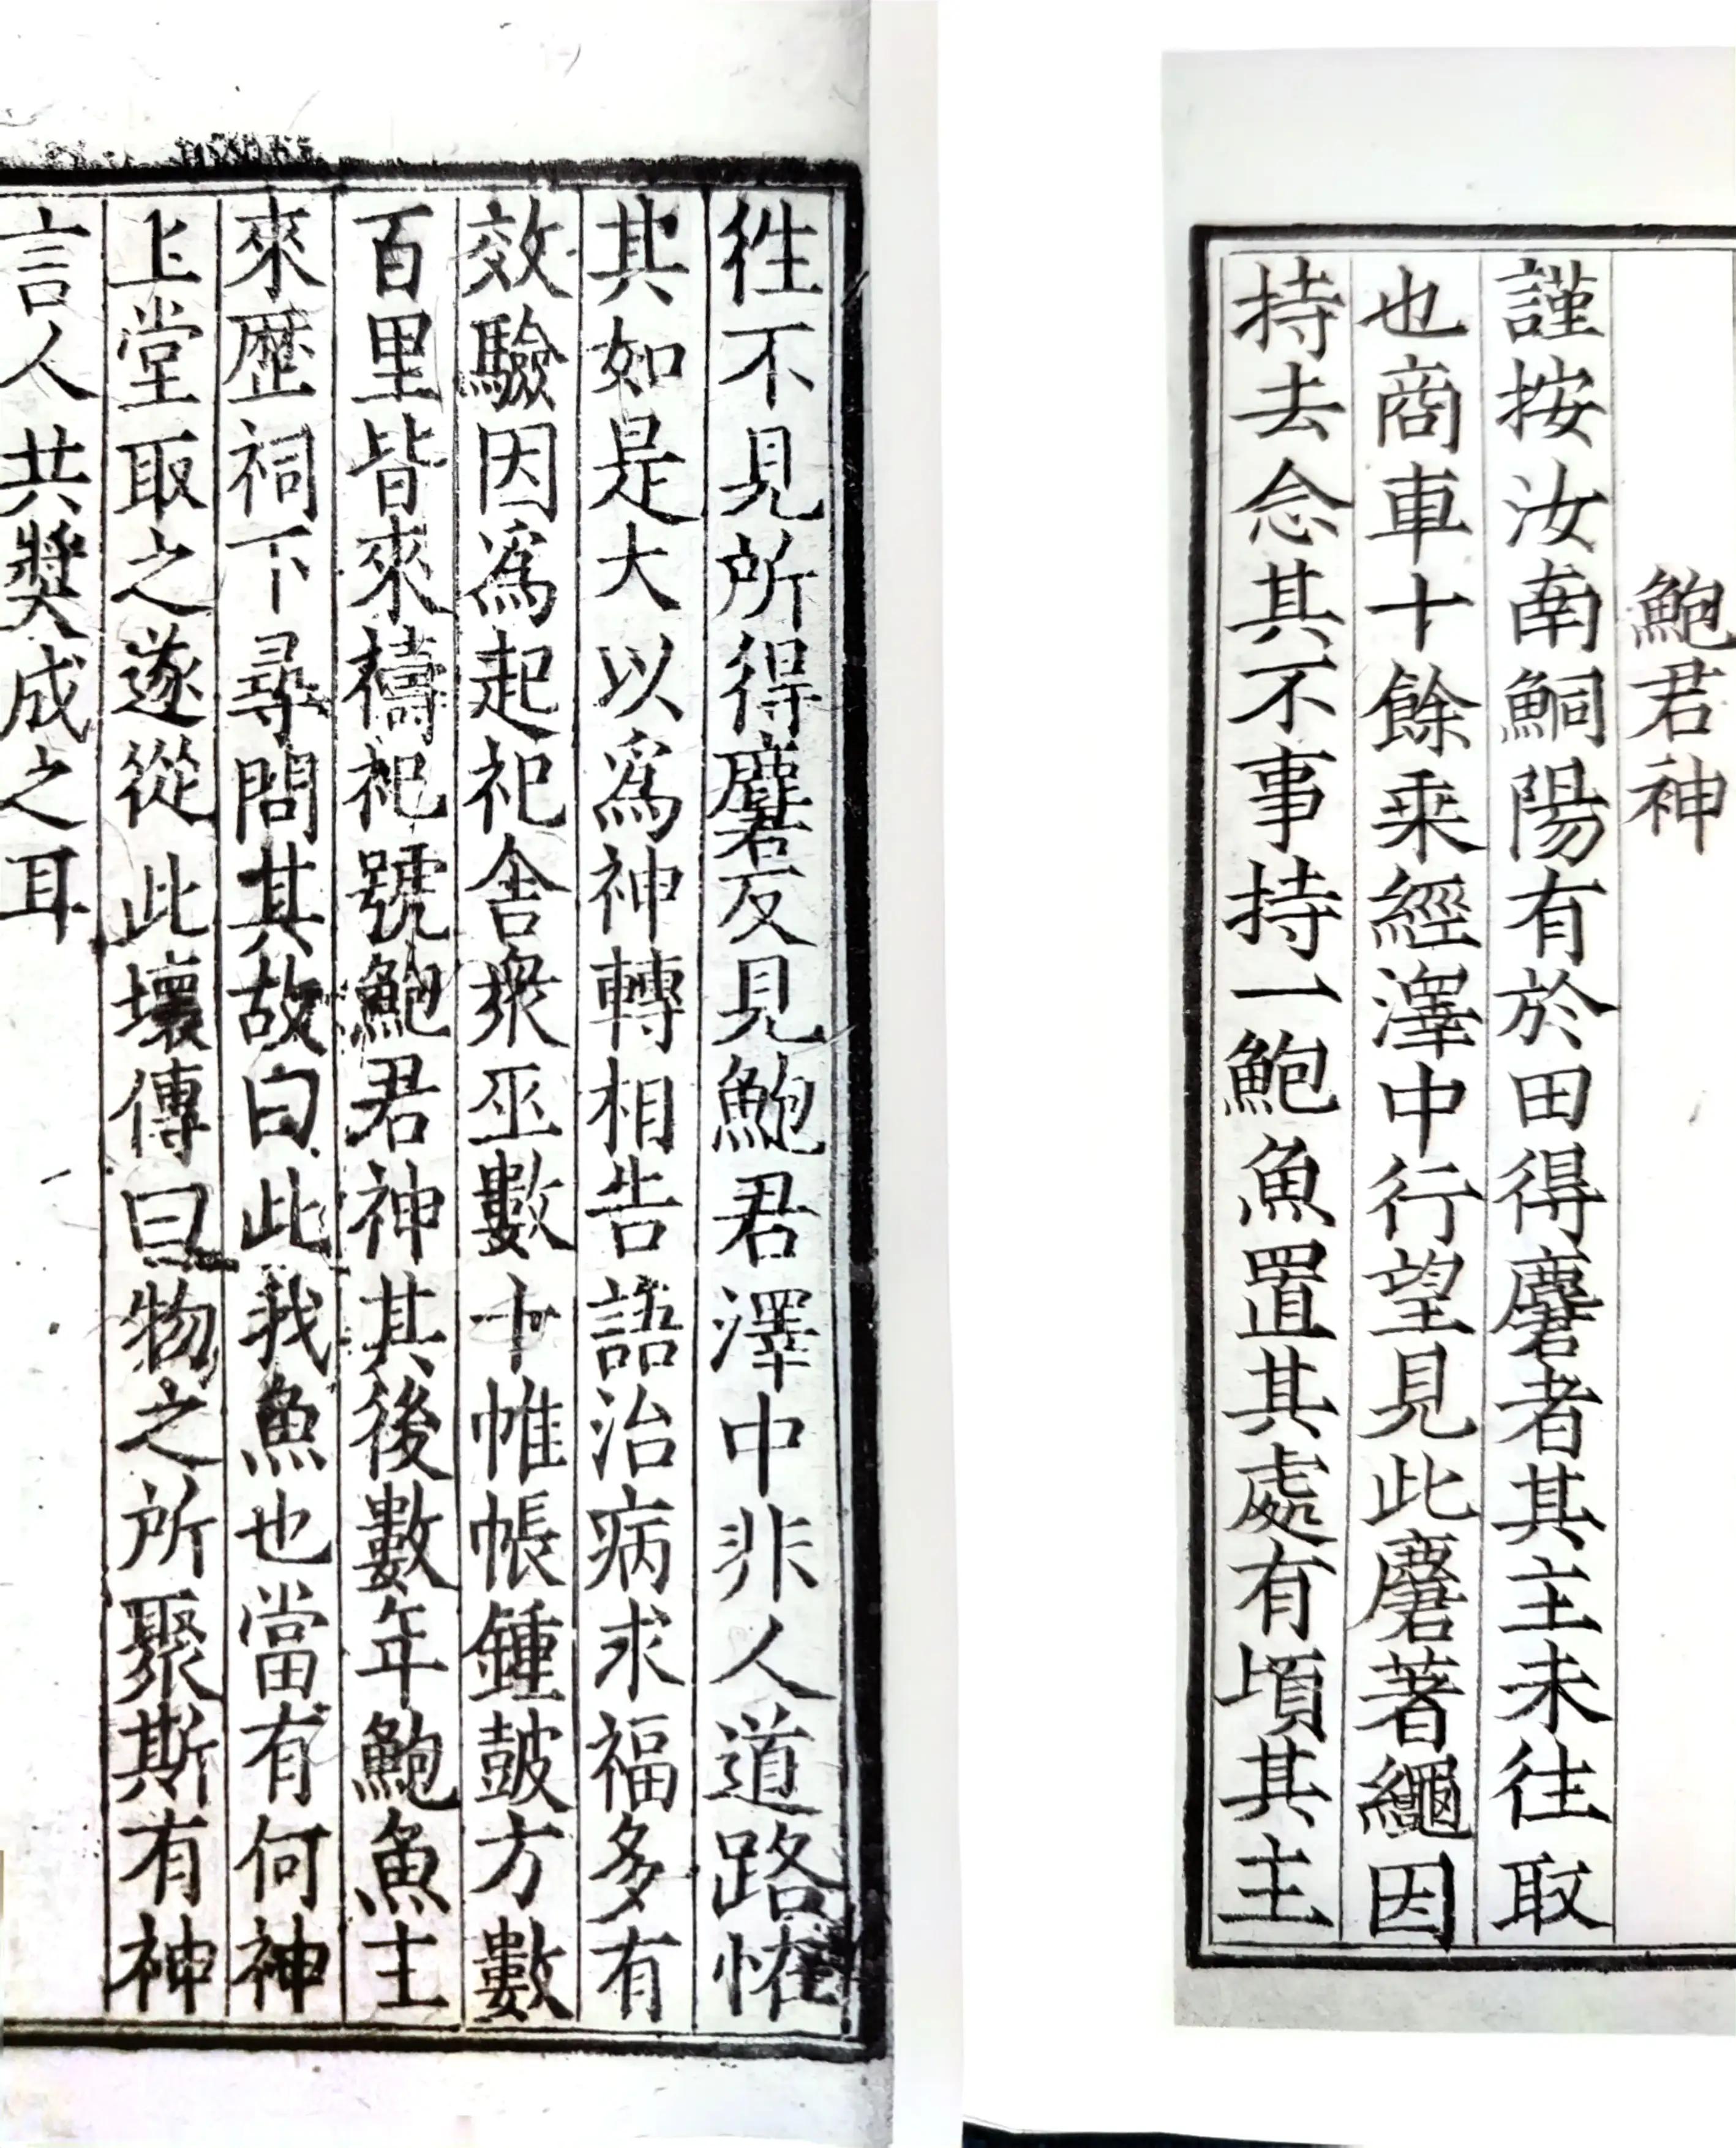 鮑君神
謹按汝南鮦陽有於田得麏者其主未往取
也商車十餘乘經澤中行望見此麏著繩因
持去念其不事持一鮑魚置其處有頃其主
徃不見所得麏反見鮑君澤中非人道路恠
其如是大以爲神轉相告語治病求福多有
效驗因爲起祀舍衆巫數十帷帳鍾皷方數
百里皆來禱祀號鮑君神其後數年鮑魚主
來歷祠下尋問其故曰此我魚也當有何神
上堂取之遂從此壞傳曰物之所聚斯有神
言人共奬成之耳